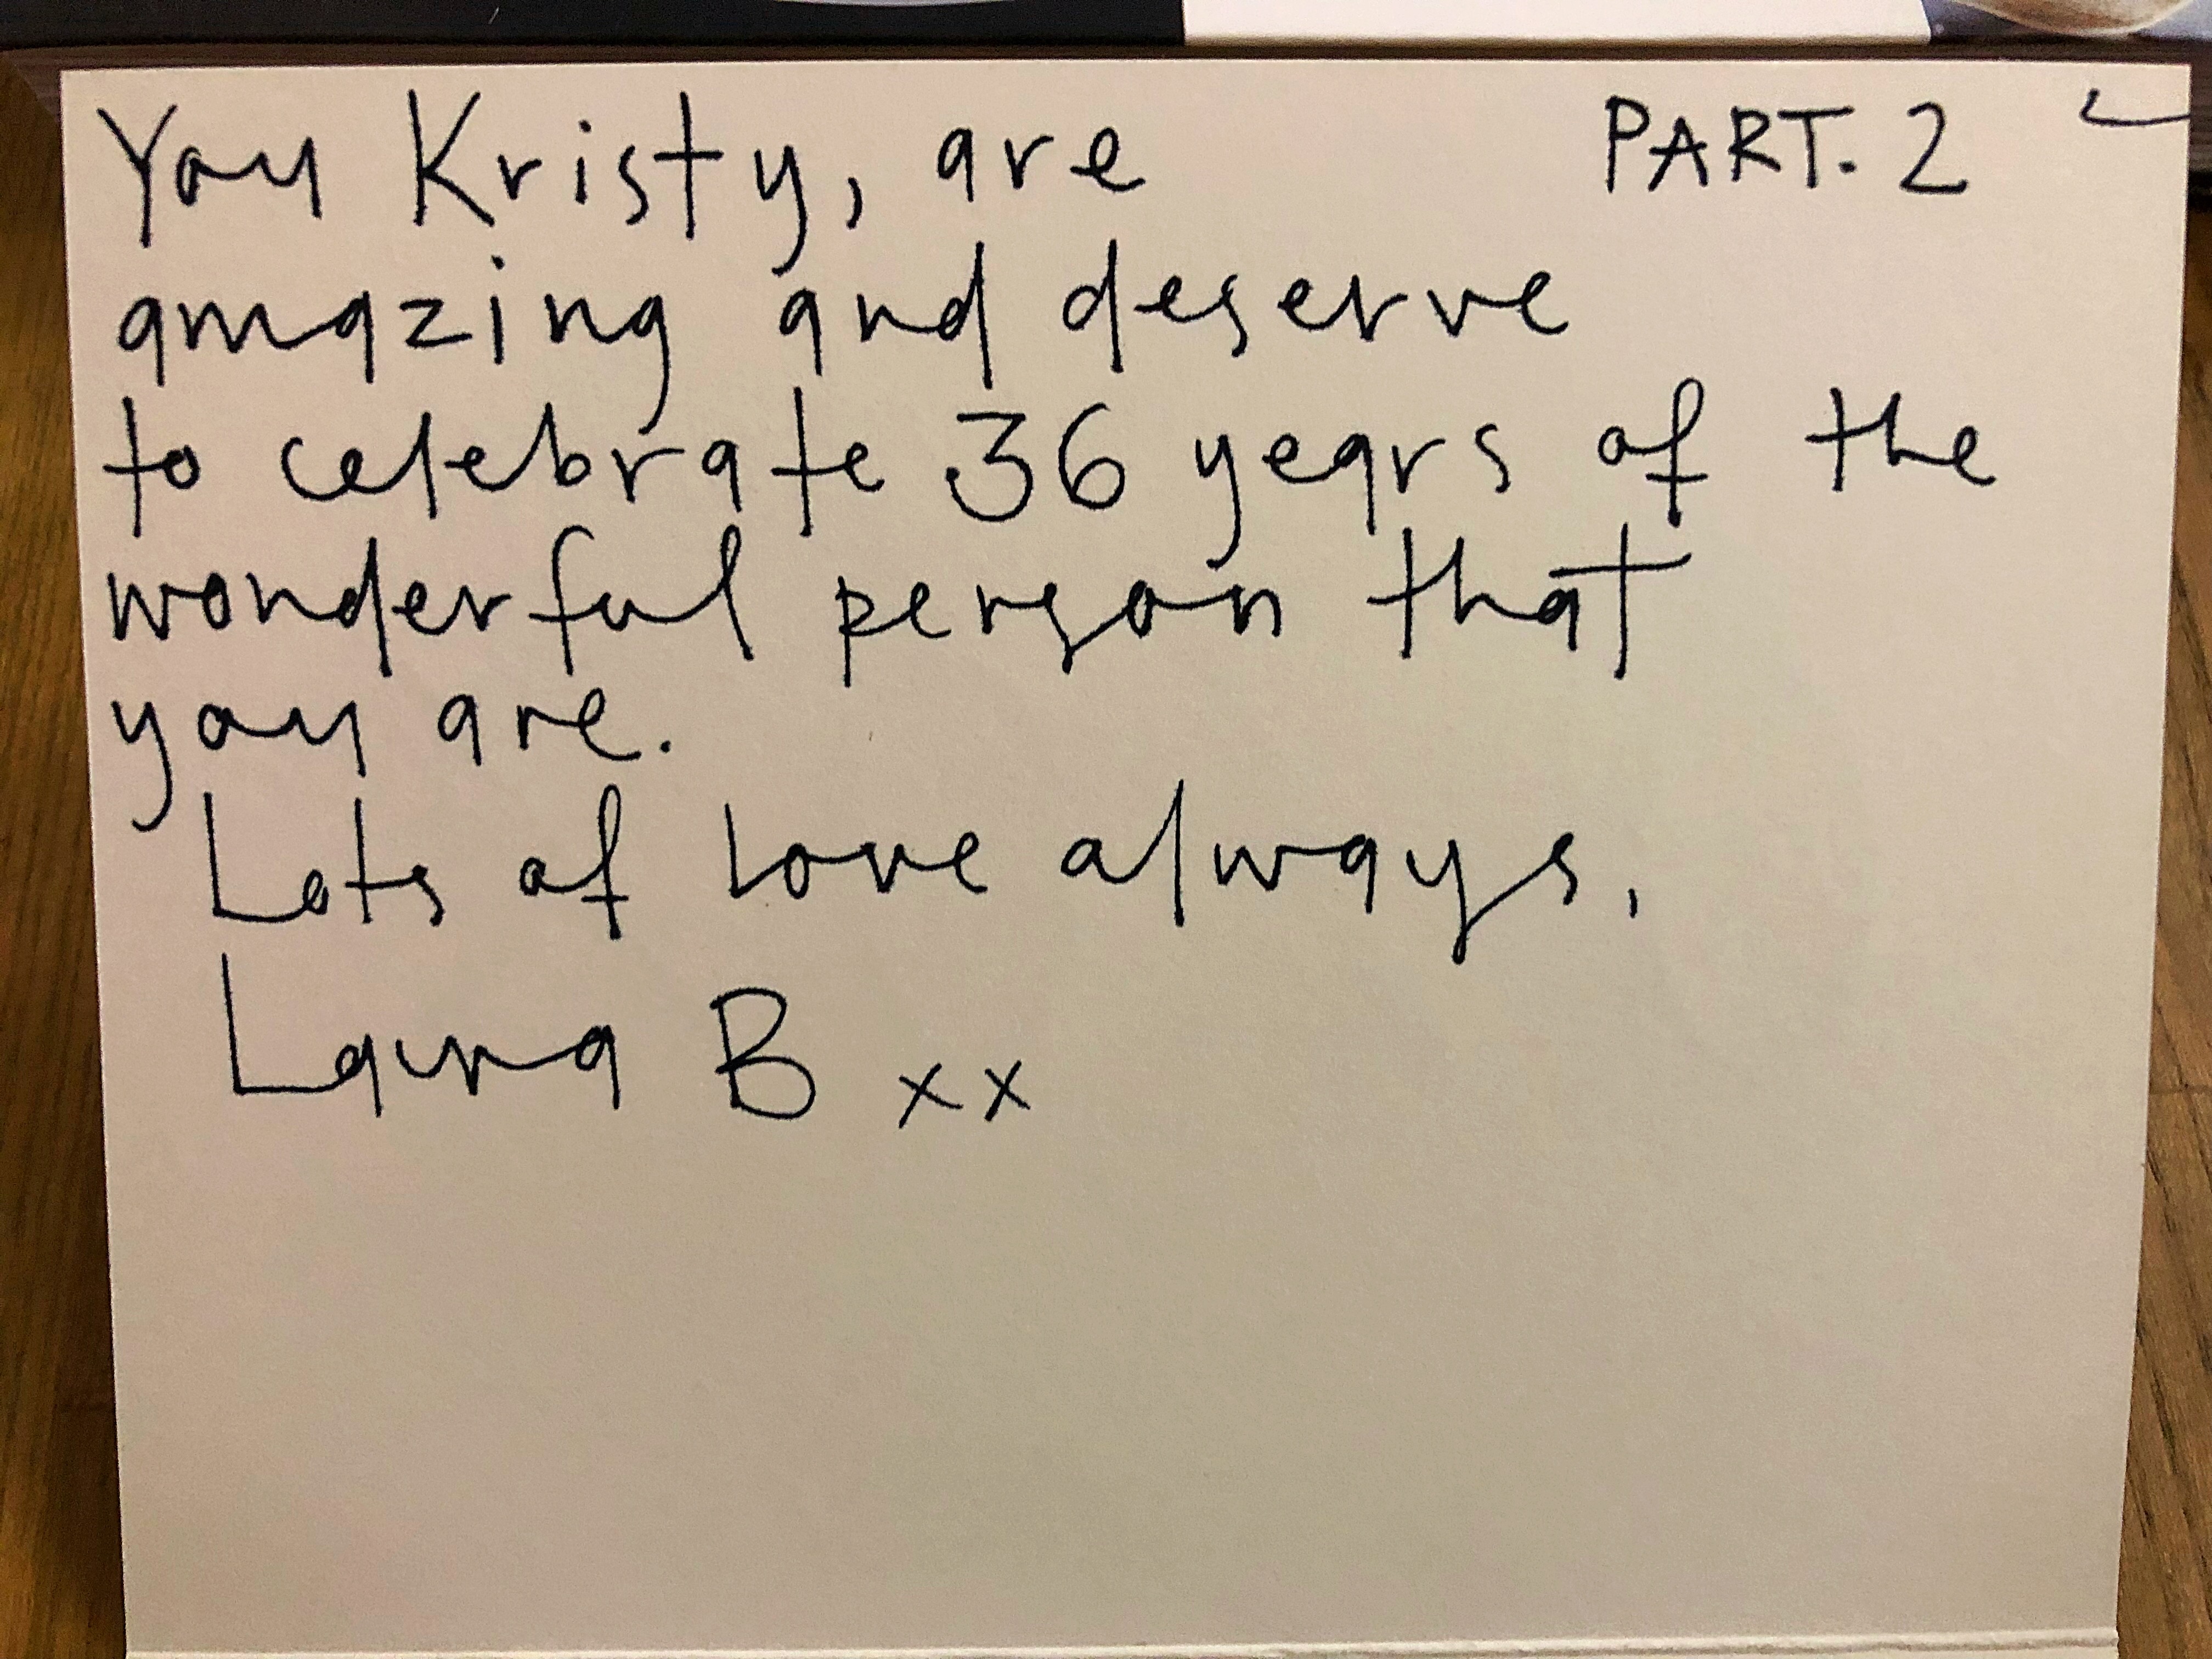 You Kristy, are PART. 2
amazing and deserve
to celebrate 36 years of the
wonderful person that
you are.
Lots of love always,
Laura B xx